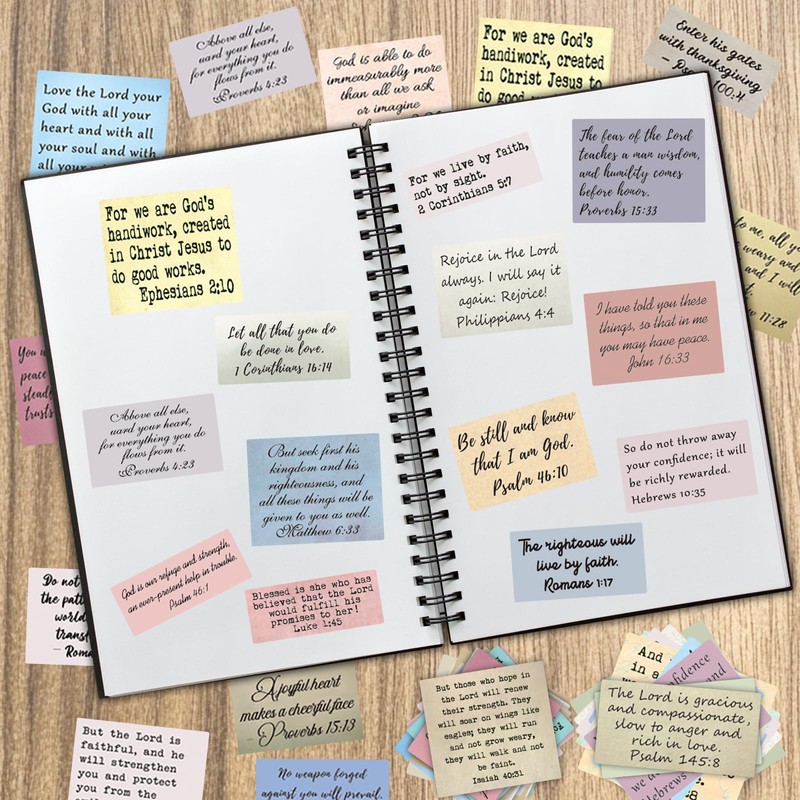 Love the Lord your
God with all your
heart and with all
your soul and with
all your
Above all else,
uard your heart,
for everything you do
flows from it.
Proverbs 4:23
God is able to do
immeasurably more
than all we ask
or imagine
For we are God's
handiwork, created
in Christ Jesus to
do good works.
Enter his gates
with thanksgiving
100:4
For we are God's
handiwork, created
in Christ Jesus to
do good works.
Ephesians 2:10
Let all that you do
be done in love.
1 Corinthians 16:14
Above all else,
uard your heart,
for everything you do
flows from it.
Proverbs 4:23
But seek first his
kingdom and his
righteousness, and
all these things will be
given to you as well.
Matthew 6:33
God is our refuge and strength,
an ever-present help in trouble.
Psalm 46:1
Blessed is she who has
believed that the Lord
would fulfill his
promises to her!
Luke 1:45
For we live by faith,
not by sight.
2 Corinthians 5:7
The fear of the Lord
teaches a man wisdom,
and humility comes
before honor.
Proverbs 15:33
Rejoice in the Lord
always. I will say it
again: Rejoice!
Philippians 4:4
I have told you these
things, so that in me
you may have peace.
John 16:33
Be still and know
that I am God.
Psalm 46:10
So do not throw away
your confidence; it will
be richly rewarded.
Hebrews 10:35
The righteous will
live by faith.
Romans 1:17
to me, all
weary and
and I will
11:28
You
peace
trusts
Do not
the
world
A joyful heart
makes a cheerful face
Proverbs 15:13
But the Lord is
faithful, and he
will strengthen
you and protect
you from the
No weapon forged
against you will prevail.
But those who hope in
the Lord will renew
their strength. They
will soar on wings like
eagles; they will run
and not grow weary,
they will walk and not
be faint.
Isaiah 40:31
And
in a
The Lord is gracious
and compassionate,
slow to anger and
rich in love.
Psalm 145:8